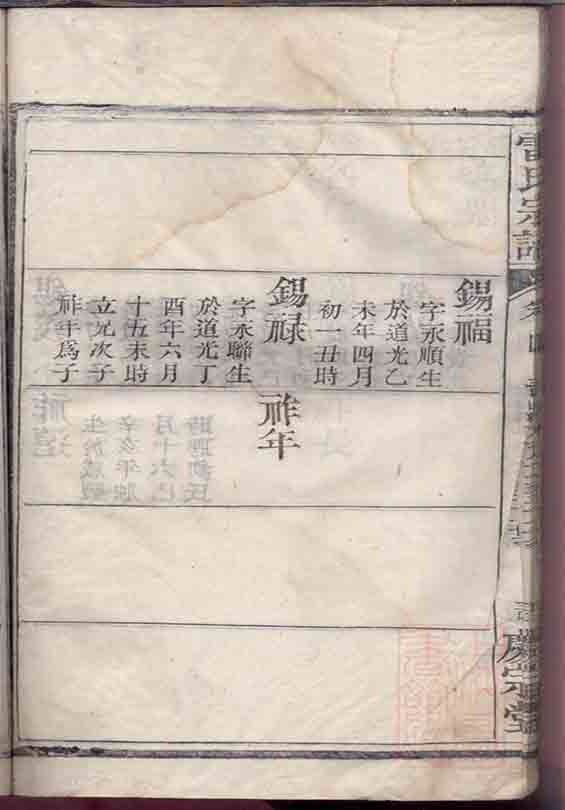 雷氏宗譜
卷四
慶崇堂
錫福
字永順生
於道光乙
未年四月
初一丑時
錫禄
字永聯生
於道光丁
酉年六月
十五未時
立兄次子
祚年為子
祚年